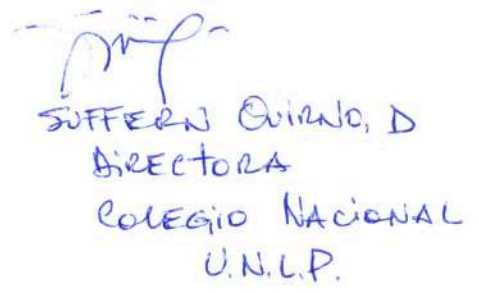 SUFFERN QUIRNO, D
DIRECTORA
COLEGIO NACIONAL
U.N.L.P.